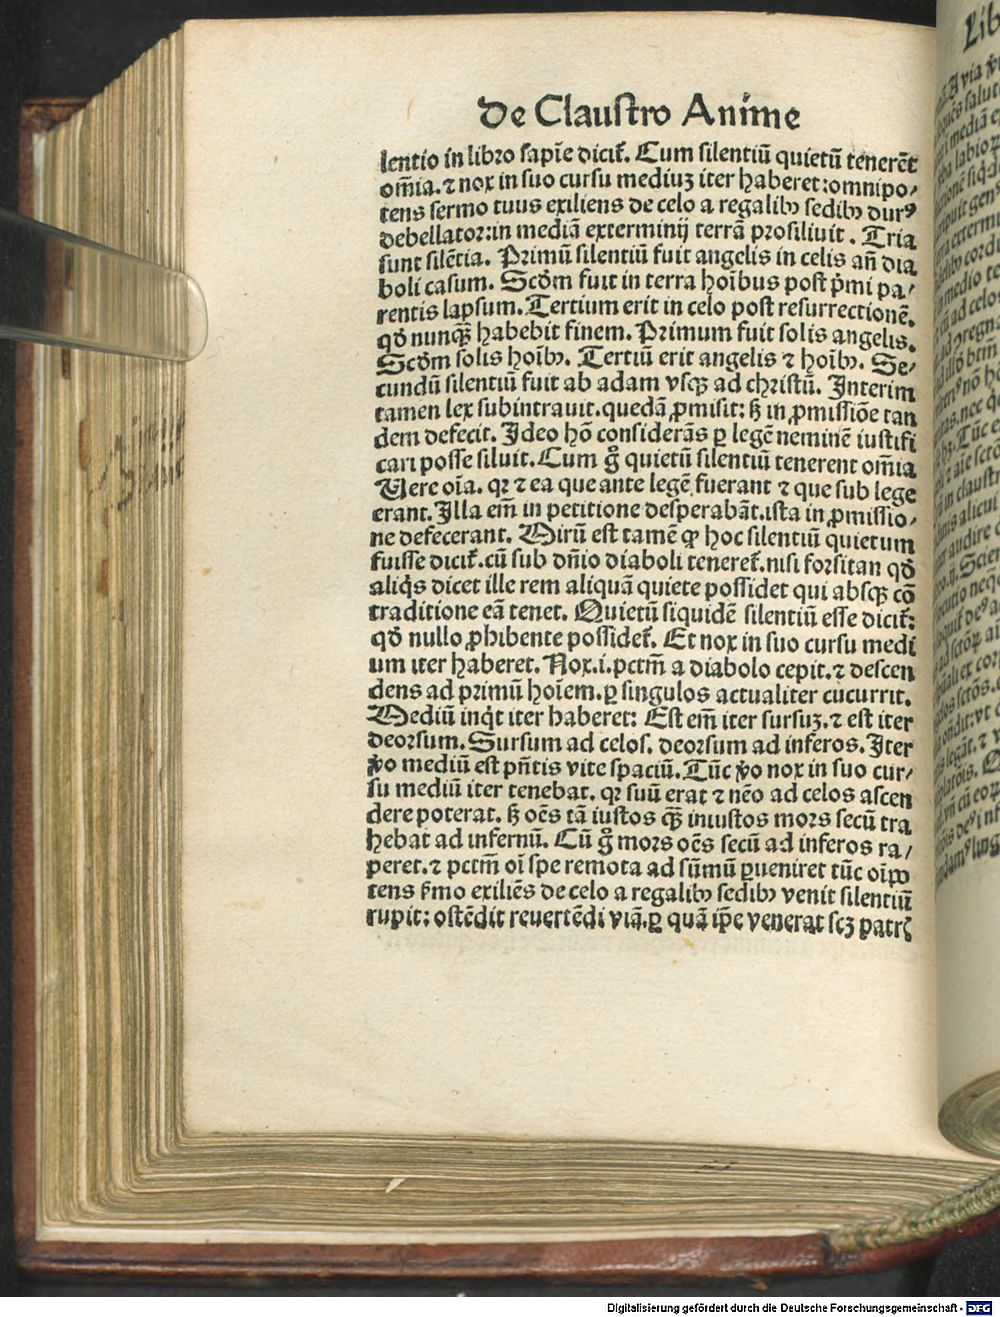 De Claustro Anime
lentio in libro sapiē dicit̄. Cum silentiū quietū tenerēt
om̄ia. ⁊ nox in suo cursu mediuꝫ iter haberet: omnipo/
tens sermo tuus exiliens de celo a regalibꝰ sedibꝰ durꝰ
debellator: in mediā exterminij terrā prosiliuit. Tria
sunt silētia. Primū silentiū fuit angelis in celis an̄ dia
boli casum. Scḋm fuit in terra hoībus post p̄mi pa/
rentis lapsum. Tertium erit in celo post resurrectionē.
qḋ nunqꝫ habebit finem. Primum fuit solis angelis.
Scḋm solis hoībꝰ. Tertiū erit angelis ⁊ hoībꝰ. Se/
cundū silentiū fuit ab adam vsqꝫ ad christū. Interim
tamen lex subintrauit. quedā ꝓmisit: sꝫ in ꝓmissiōe tan
dem defecit. Ideo hō considerās ꝑ legē neminē iustifi
cari posse siluit. Cum gͦ quietū silentiū tenerent om̄ia
Vere oīa. qꝛ ⁊ ea que ante legē fuerant ⁊ que sub lege
erant. Illa em̄ in petitione desperabāt. ista in ꝓmissio/
ne defecerant. Mirū est tamē ꝙ hoc silentiū quietum
fuisse dicit̄. cū sub dn̄io diaboli teneret̄. nisi forsitan qḋ
aliq̇s dicet ille rem aliquā quiete possidet qui absqꝫ cō
traditione eā tenet. Quietū siquidē silentiū esse dicit̄:
qḋ nullo ꝓhibente possidet̄. Et nox in suo cursu medi
um iter haberet. Nox .i. pctm̄ a diabolo cepit. ⁊ descen
dens ad primū hoīem. ꝑ singulos actualiter cucurrit.
Mediū inq̇t iter haberet: Est em̄ iter sursuꝫ. ⁊ est iter
deorsum. Sursum ad celos. deorsum ad inferos. Iter
v̊o mediū est pn̄tis vite spaciū. Tūc v̊o nox in suo cur/
su mediū iter tenebat. qꝛ suū erat ⁊ nēo ad celos ascen
dere poterat. sꝫ oēs tā iustos qꝫ iniustos mors secū tra
hebat ad infernū. Cū gͦ mors oēs secū ad inferos ra/
peret. ⁊ pctm̄ oī spe remota ad sūmū ꝑueniret tūc oīpo
tens s̄mo exiliēs de celo a regalibꝰ sedibꝰ venit silentiū
rupit: ostēdit reuertēdi viā. ꝑ quā ip̄e venerat scꝫ patrꝭ
Digitalisierung gefördert durch die Deutsche Forschungsgemeinschaft - DFG